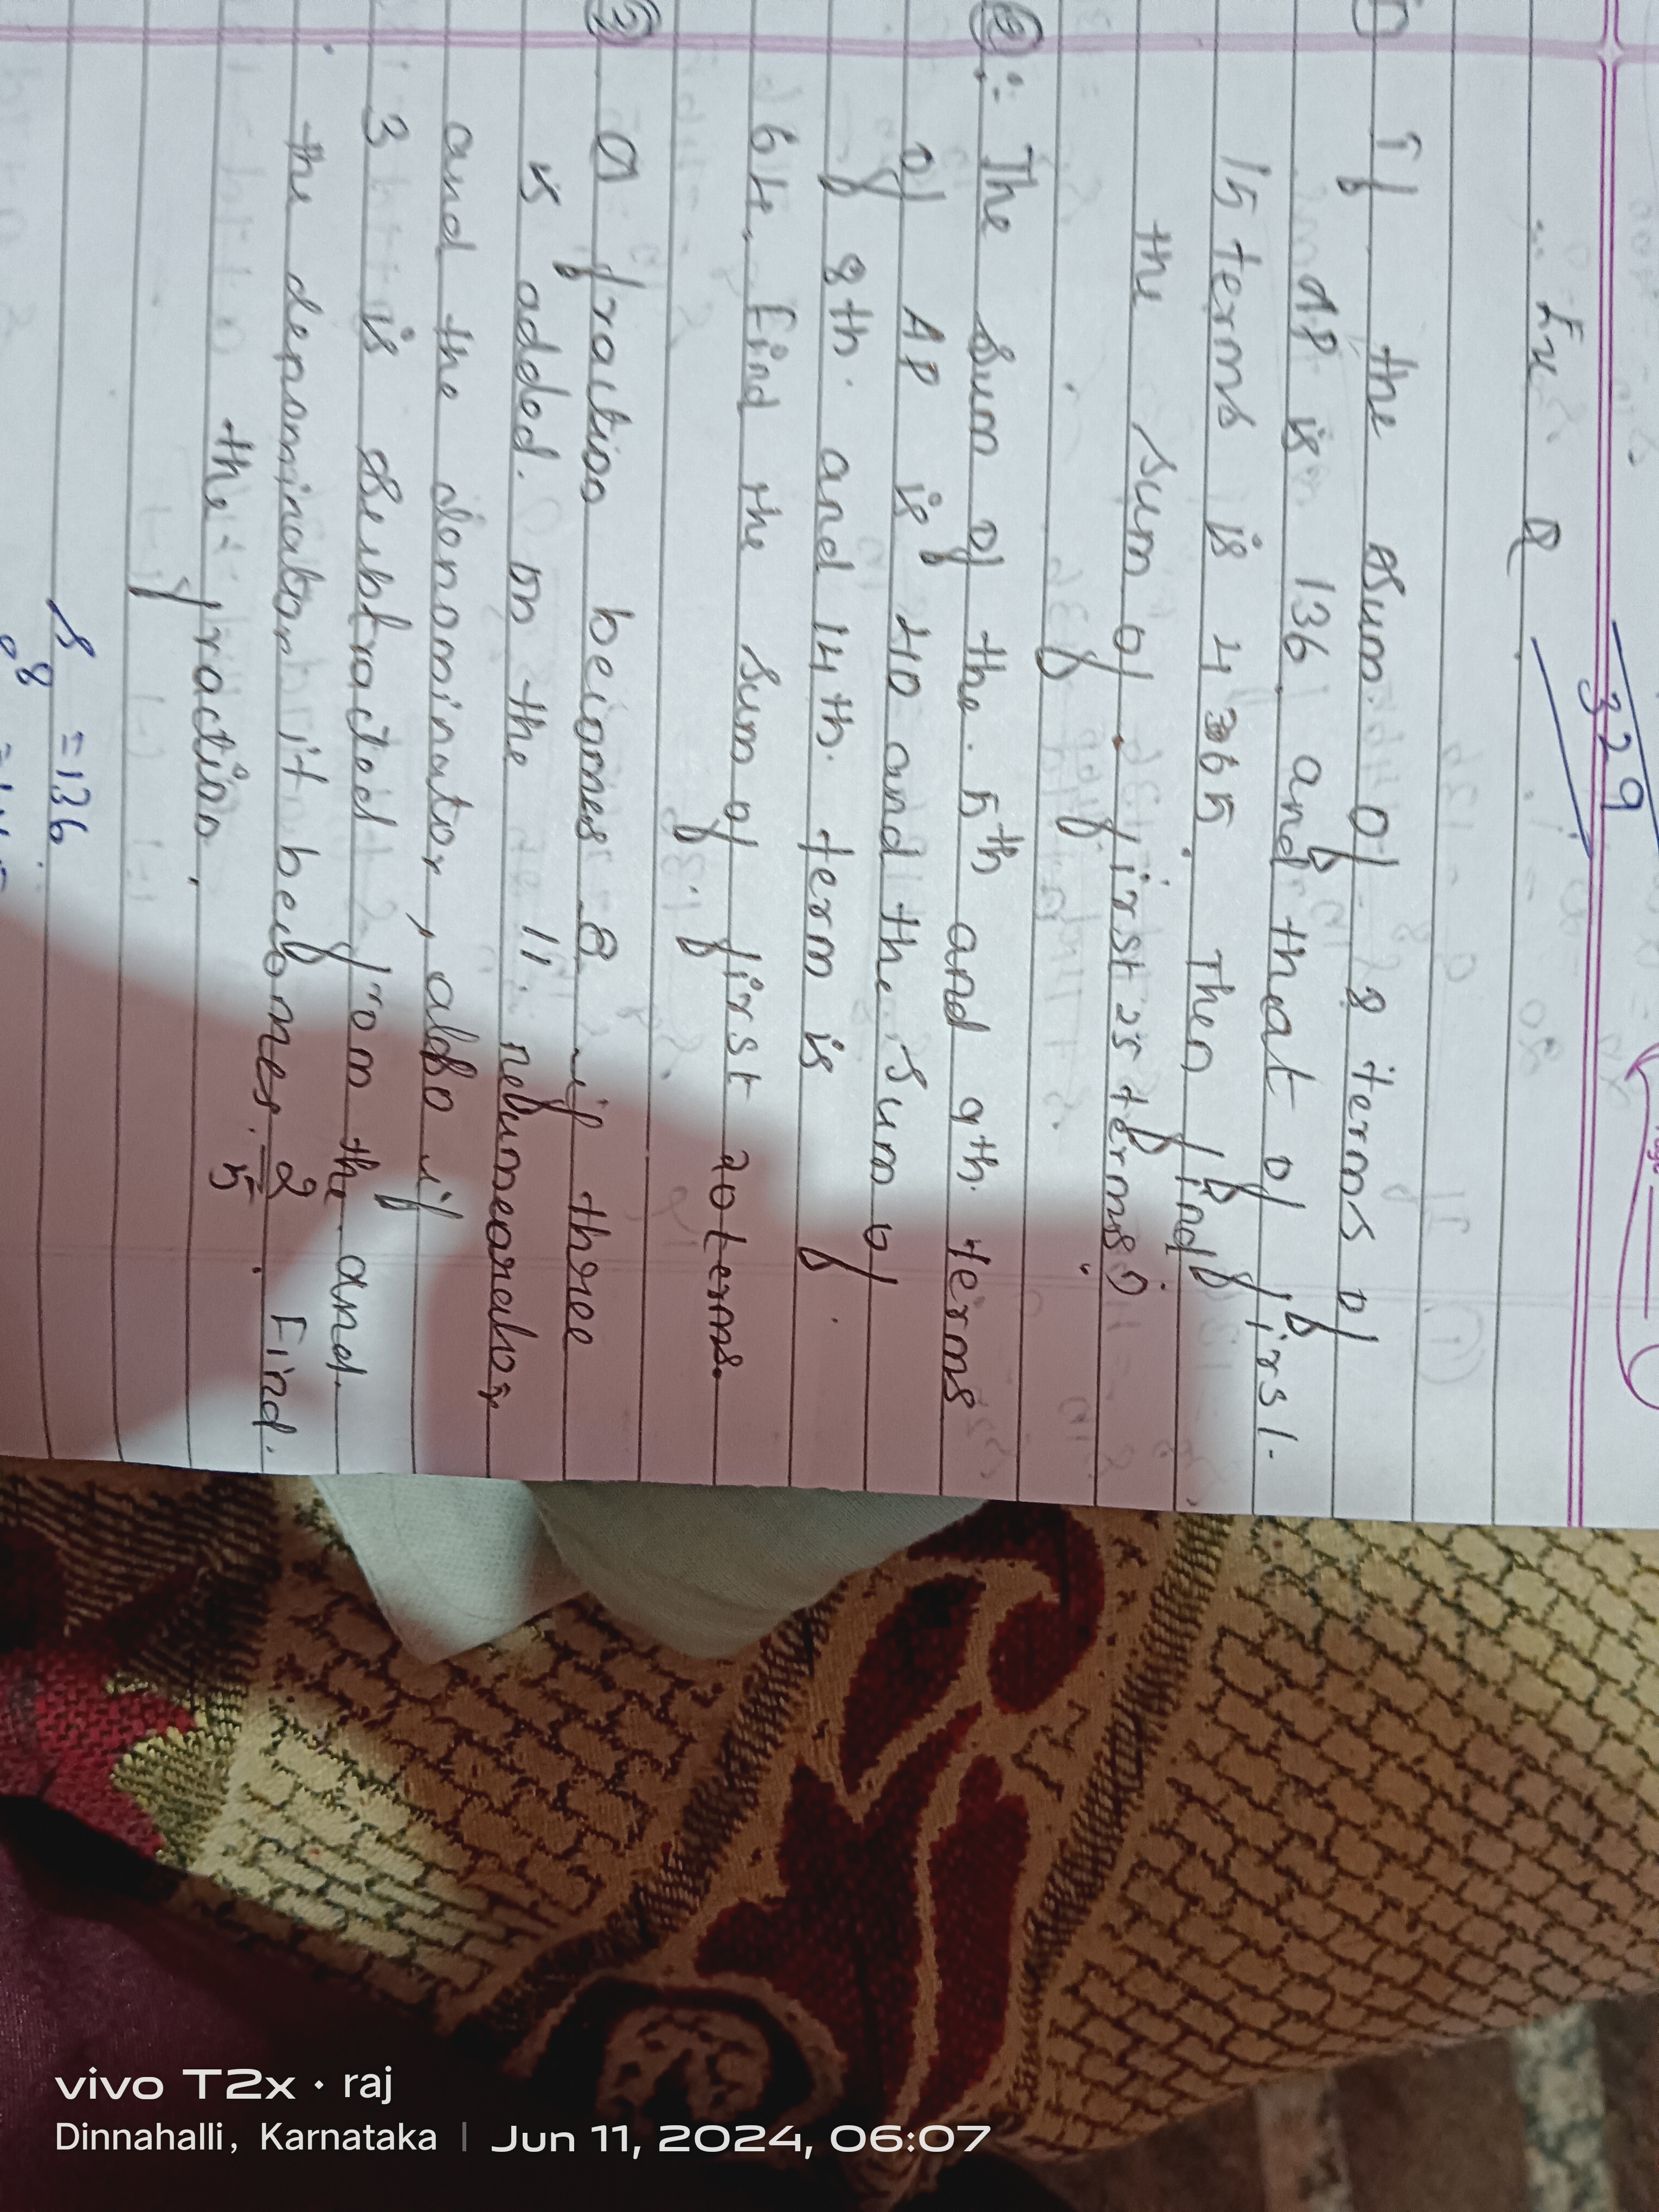 329
Ex Q
1) If the sum of 8 terms of
AP is 136 and that of first
15 terms is 4365. Then find
the sum of first 25 terms?
② :- The sum of the 5th and 9th terms
of AP is 40 and the sum of
of 8th and 14th term is
64. Find the sum of first 20 terms.
③ A fraction becomes 8 if three
is added. on the 11 neumearator
and the donominator, also if
3 is subtracted from the and
the denominator it becomes 2/5. Find
the fraction.
S8 = 136
vivo T2x · raj
Dinnahalli, Karnataka | Jun 11, 2024, 06:07